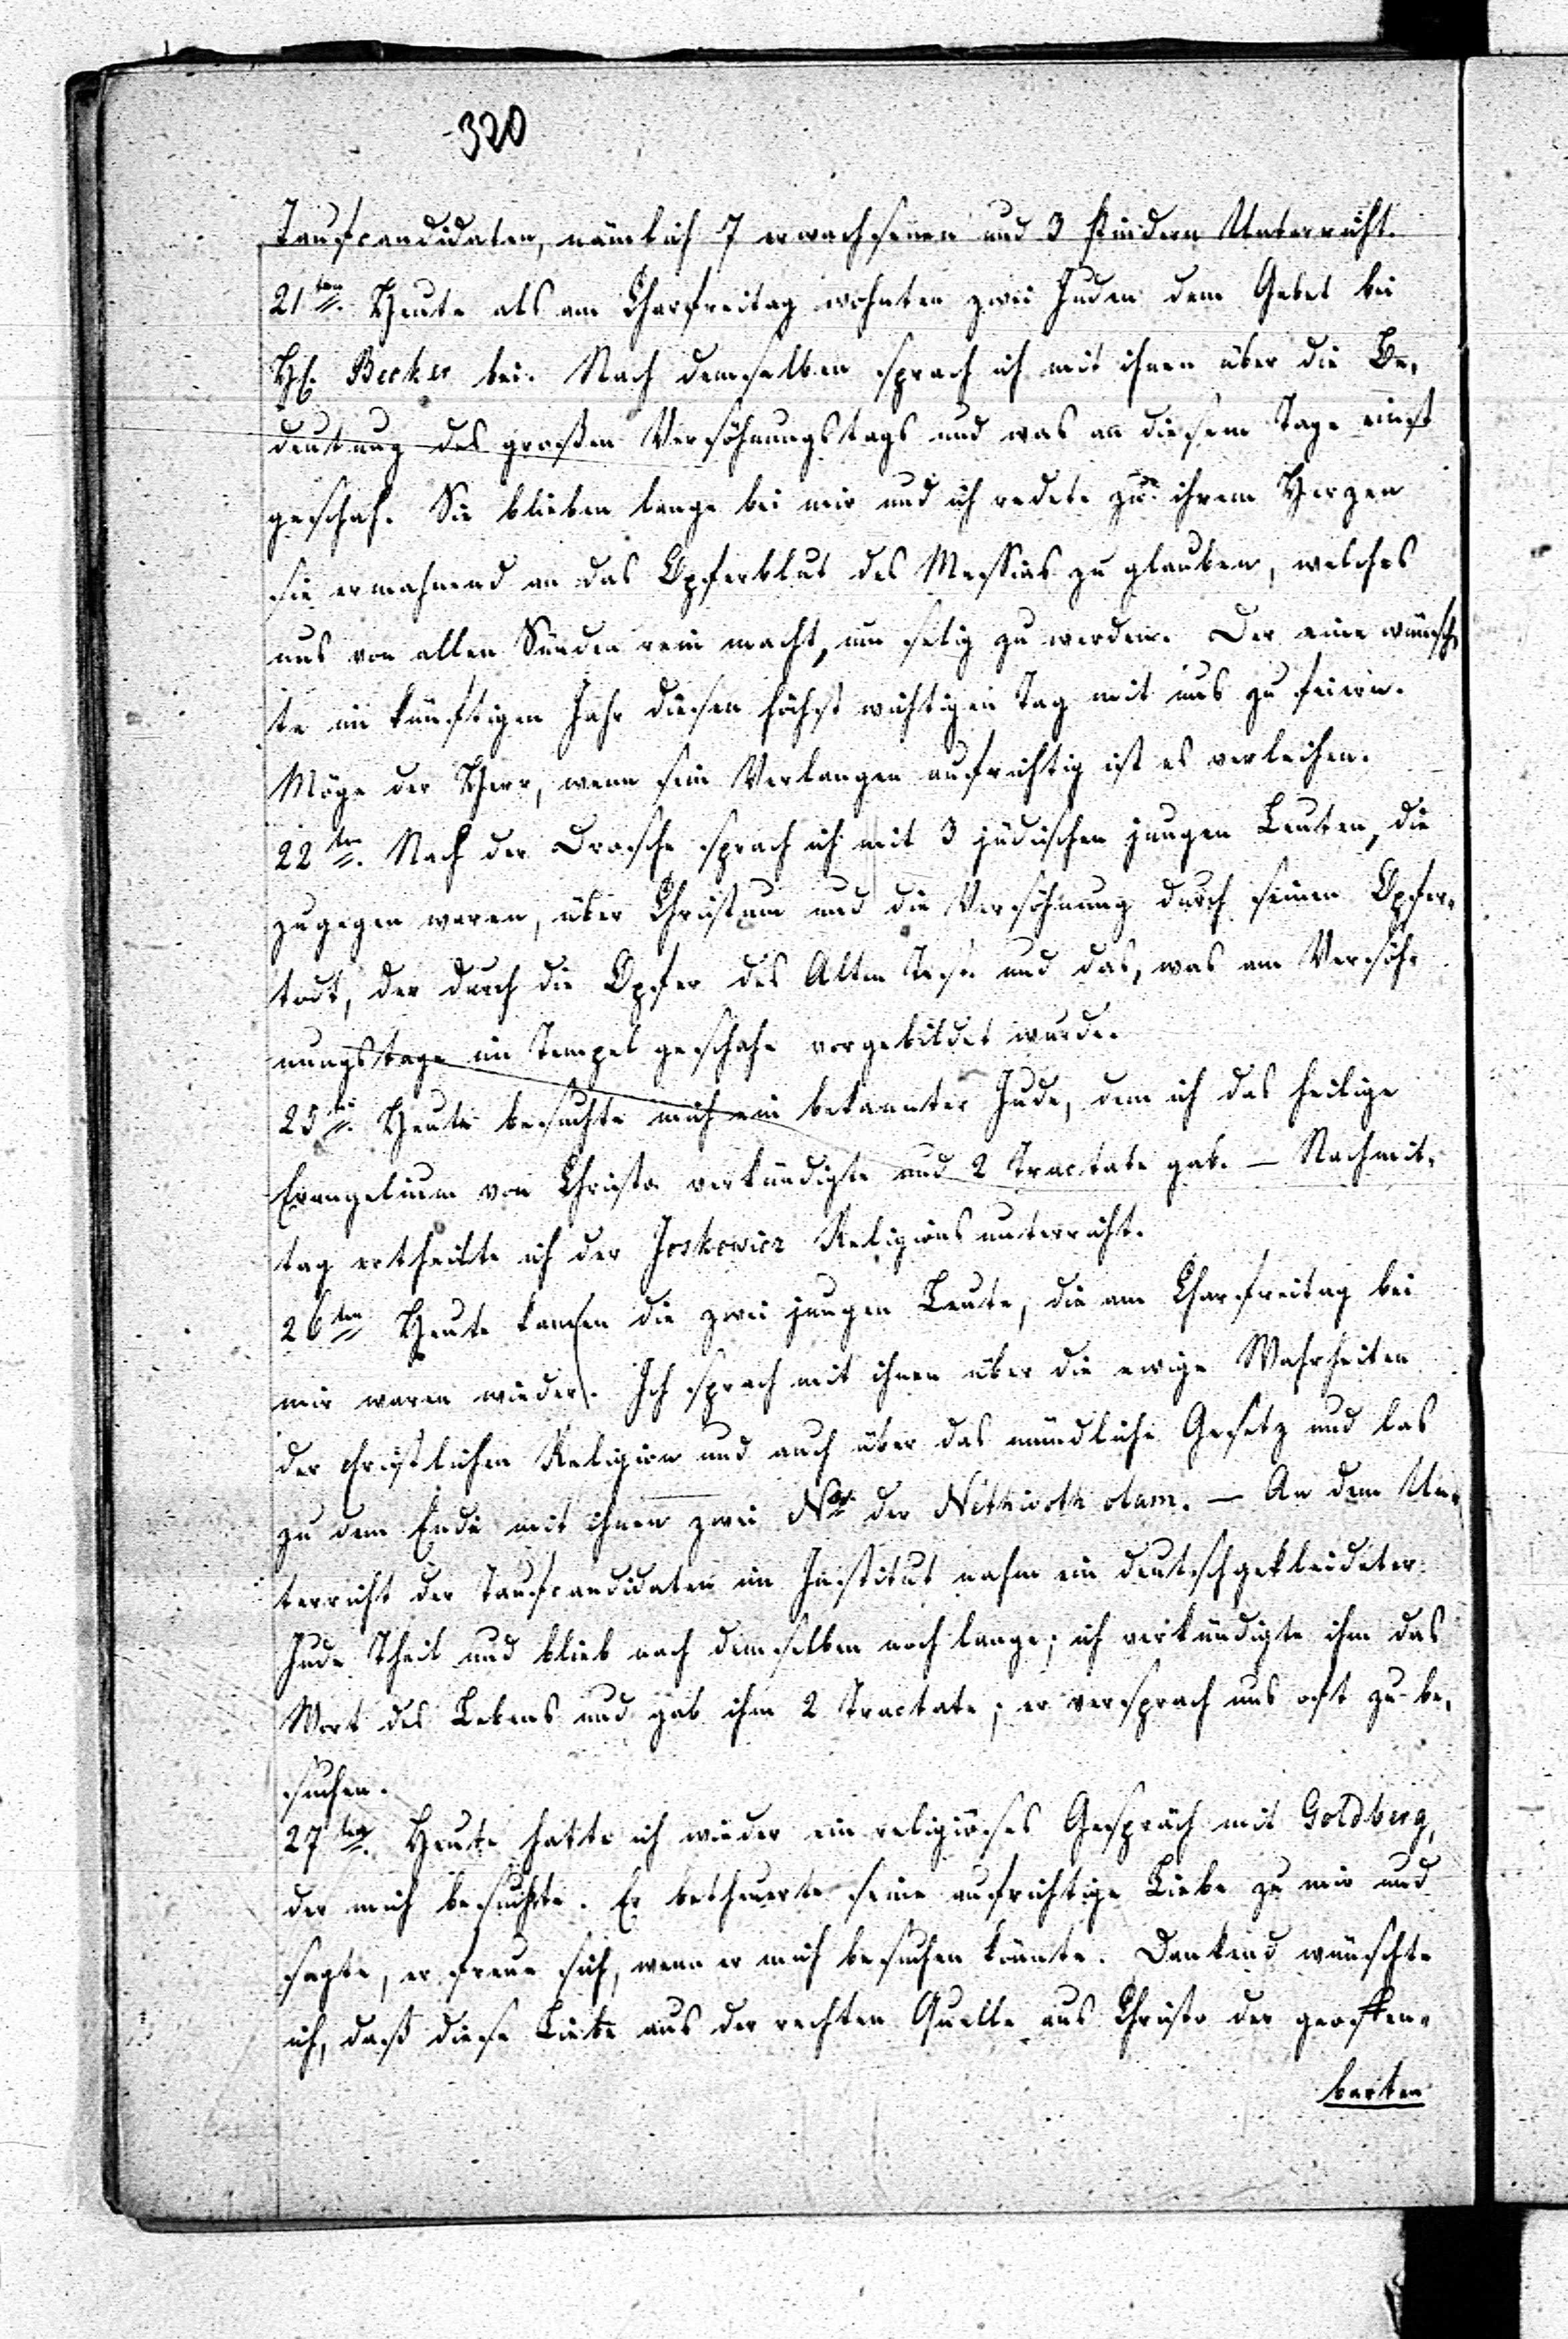 320
Taufcandidaten, nämlich 7 erwachsenen und 3 Kindern Unterricht.
21ten. Heute als am Charfreitag wohnten zwei Juden dem Gebet bei
H. Becker bei. Nach demselben sprach ich mit ihnen über die Be-
deutung des großen Versöhnungstags und was an diesem Tage einst
geschah. Sie blieben lange bei mir und ich redete zu ihrem Herzen
sie ermahnend an das Opferblut des Messias zu glauben, welches
uns von allen Sünden rein macht, um selig zu werden. Der eine wünsch
te im künftigen Jahr diesen höchst wichtigen Tag mit uns zu feiern.
Möge der Herr, wenn sein Verlangen aufrichtig ist es verleihen.
22ten. Nach der Drasche sprach ich mit 3 jüdischen jungen Leuten, die
zugegen waren, über Christum und die Versöhnung durch seinen Opfer-
todt, der durch die Opfer des Alten Test. und das, was am Versöh-
nungstage im Tempel geschahe vorgebildet wurde.
25ten. Heute besuchte mich ein bekannter Jude, dem ich das heilige
Evangelium von Christo verkündigte und 2 Tractate gab. — Nachmit-
tag ertheilte ich der Joskowicz Religions unterricht.
26ten Heute kamen die zwei jungen Leute, die am Charfreitag bei
mir waren wieder. Ich sprach mit ihnen über die ewige Wahrheiten
der christlichen Religion und auch über das mündliche Gesetz und las
zu dem Ende mit ihnen zwei Nr der Nethivoth olam. — An dem Un-
terricht der Taufcandidaten im Institut nahm ein deutschgekleideter
Jude Theil und blieb nach demselben noch lange; ich verkündigte ihm das
Wort des Lebens und gab ihm 2 Tractate; er versprach uns oft zu be-
suchen.
27ten. Heute hatte ich wieder ein religiöses Gespräch mit Goldberg,
der mich besuchte. Er betheuerte seine aufrichtige Liebe zu mir und
sagte, er freue sich, wenn er mich besuchen könnte. Dankend wünschte
ich, daß diese Liebe aus der rechten Quelle aus Christo der geoffen-
barten